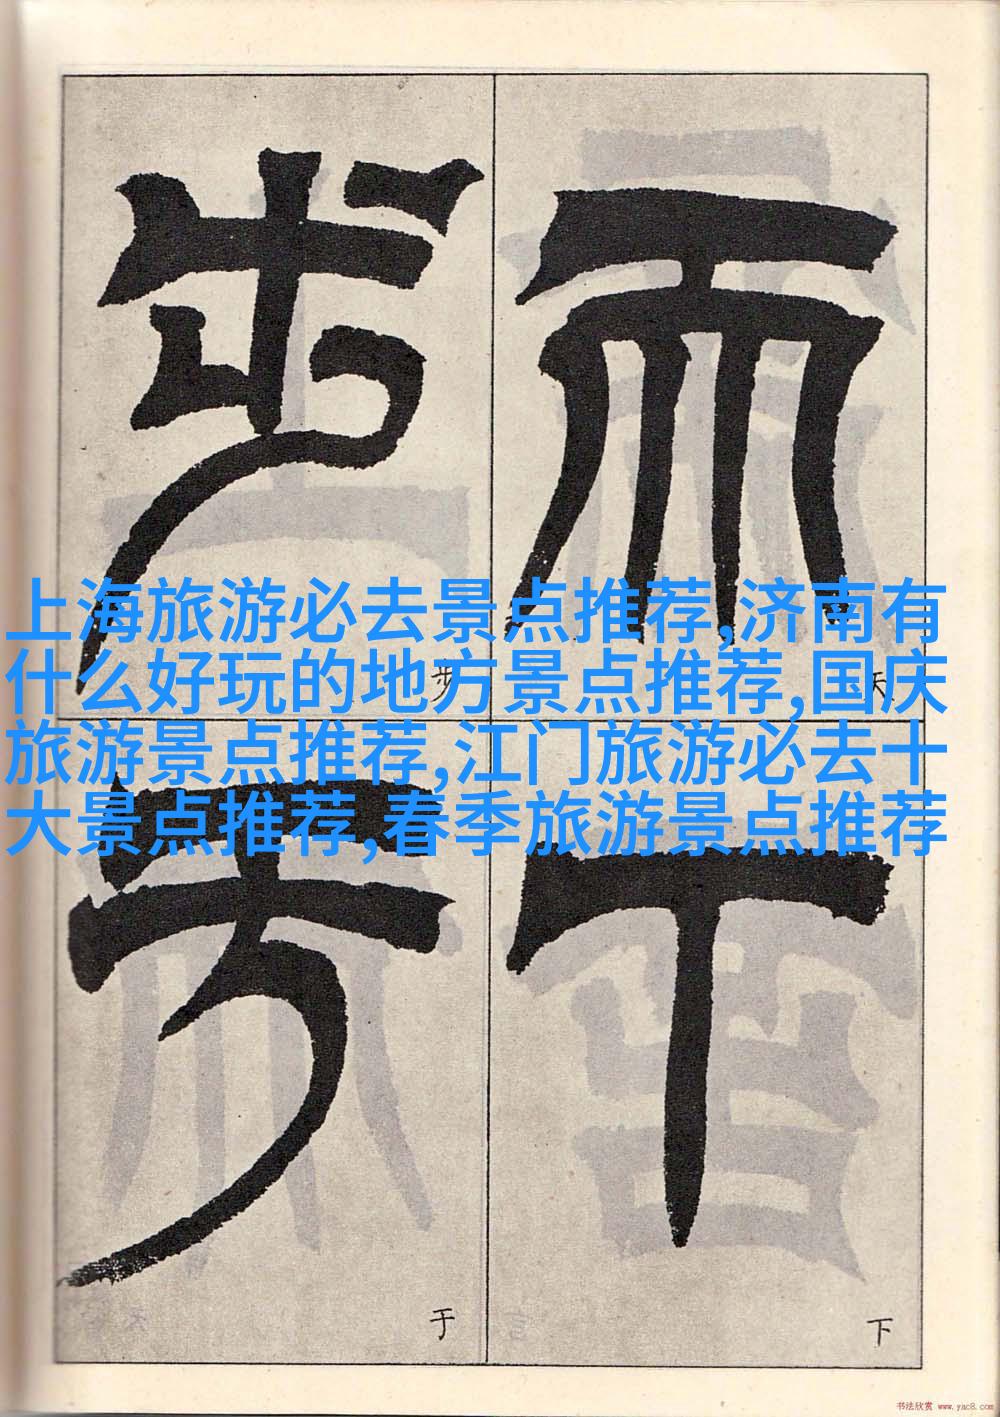 上海旅游必去景点推荐,济南有
什么好玩的地方景点推荐,国庆
旅游景点推荐,江门旅游必去十
大景点推荐,春季旅游景点推荐
天
天
下
下
步
步
于
于
书法欣赏 www.yac8.com